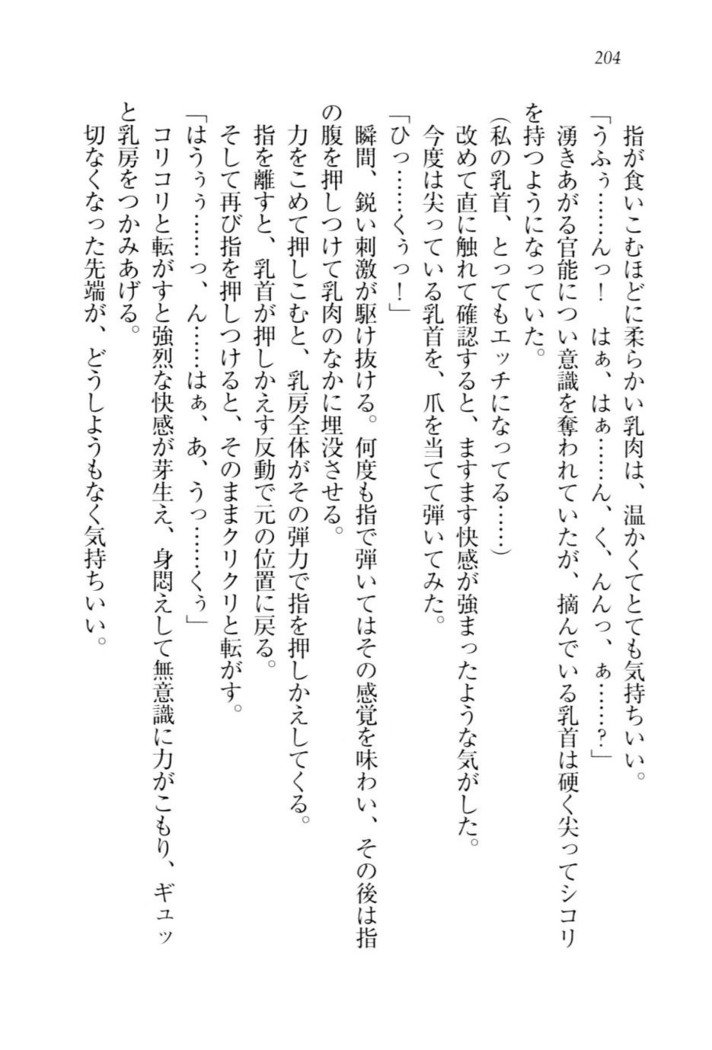 204
指が食いこむほどに柔らかい乳肉は、温かくてとても気持ちいい。
「うふぅ……んっ！　はぁ、はぁ……ん、く、んんっ、ぁ……？」
湧きあがる官能につい意識を奪われていたが、摘んでいる乳首は硬く尖ってシコリ
を持つようになっていた。
（私の乳首、とってもエッチになってる……）
改めて直に触れて確認すると、ますます快感が強まったような気がした。
今度は尖っている乳首を、爪を当てて弾いてみた。
「ひっ……くぅっ！」
瞬間、鋭い刺激が駆け抜ける。何度も指で弾いてはその感覚を味わい、その後は指
の腹を押しつけて乳肉のなかに埋没させる。
力をこめて押しこむと、乳房全体がその弾力で指を押しかえしてくる。
指を離すと、乳首が押しかえす反動で元の位置に戻る。
そして再び指を押しつけると、そのままクリクリと転がす。
「はうぅぅ……っ、ん……はぁ、あ、うっ……くぅ」
コリコリと転がすと強烈な快感が芽生え、身悶えして無意識に力がこもり、ギュッ
と乳房をつかみあげる。
切なくなった先端が、どうしようもなく気持ちいい。